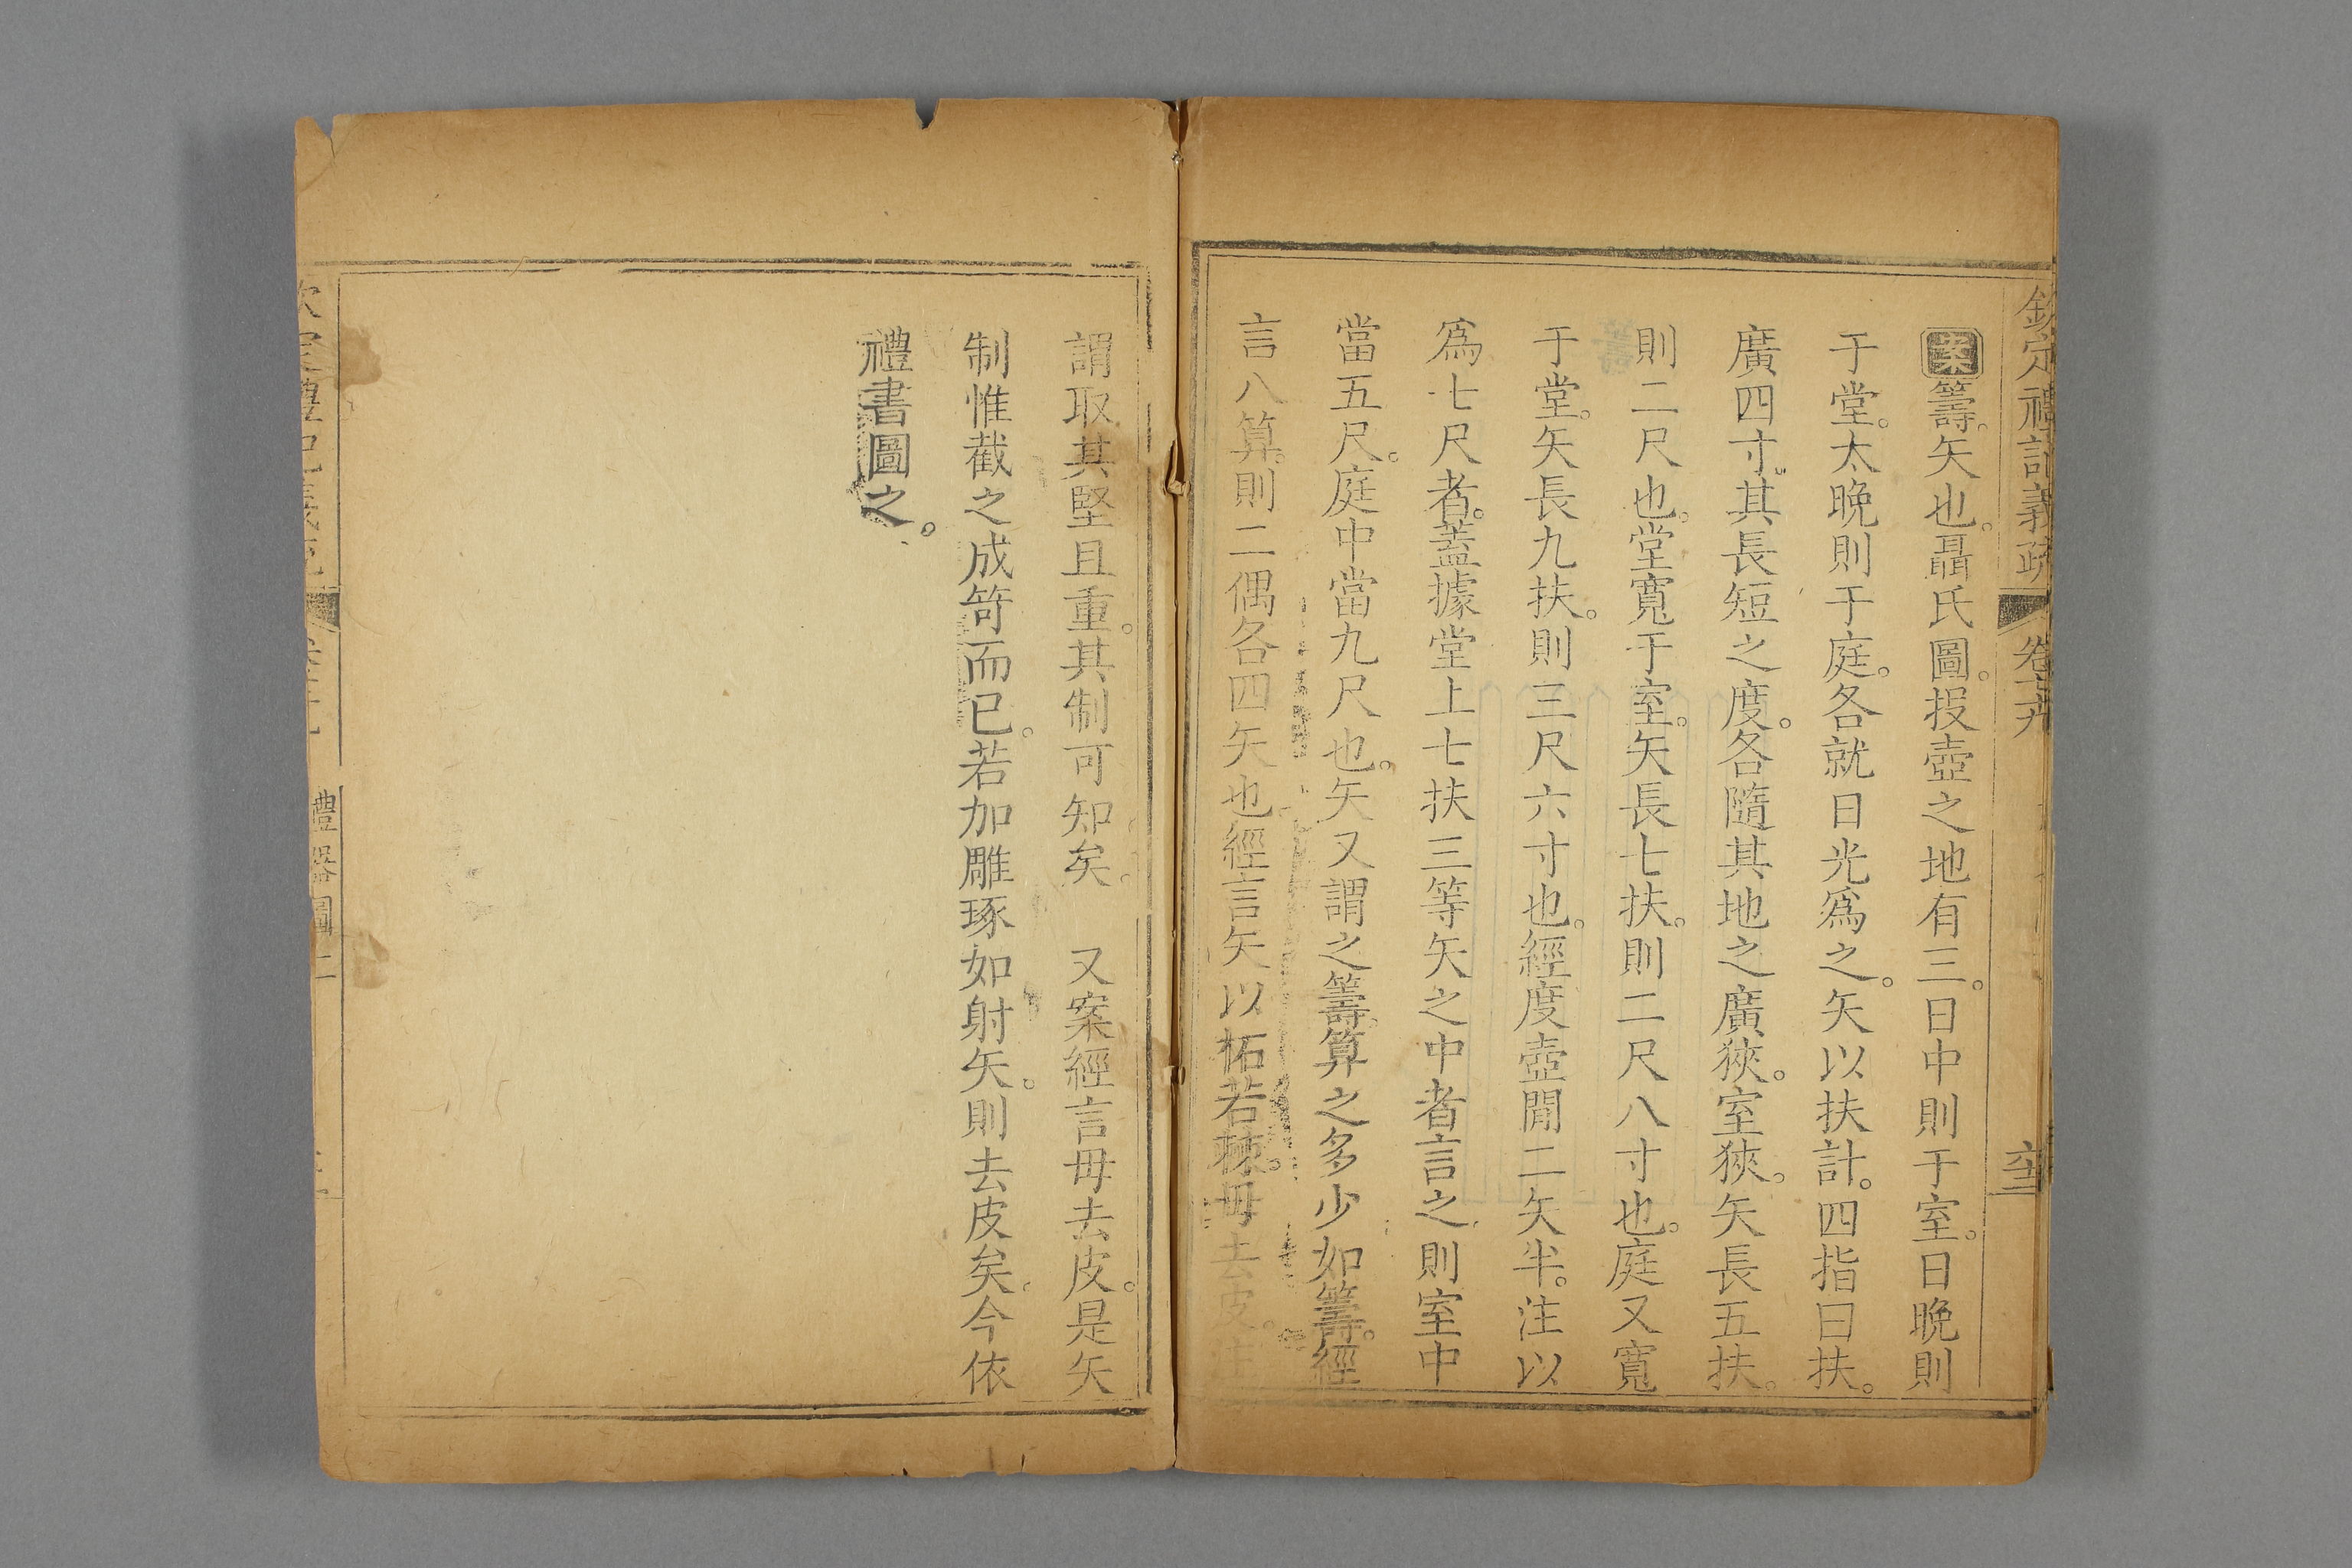 欽定禮記義疏 卷
案籌。矢也。聶氏圖。投壺之地有三。日中則于室。日晚則
于堂。太晚則于庭。各就日光爲之。矢以扶計。四指曰扶。
廣四寸。其長短之度。各隨其地之廣狹。室狹。矢長五扶。
則二尺也。堂寬于室。矢長七扶。則二尺八寸也。庭又寬
于堂。矢長九扶。則三尺六寸也。經度壺閒二矢半。注以
爲七尺者。蓋據堂上七扶三等矢之中者言之。則室中
當五尺。庭中當九尺也。矢又謂之籌。算之多少如籌。經
言八算。則二偶各四矢也經言矢以柘若棘。毋去皮。注
謂取其堅且重。其制可知矣。 又案經言毋去皮。是矢
制惟截之成笴而已。若加雕琢如射矢。則去皮矣。今依
禮書圖之。
禮器圖二